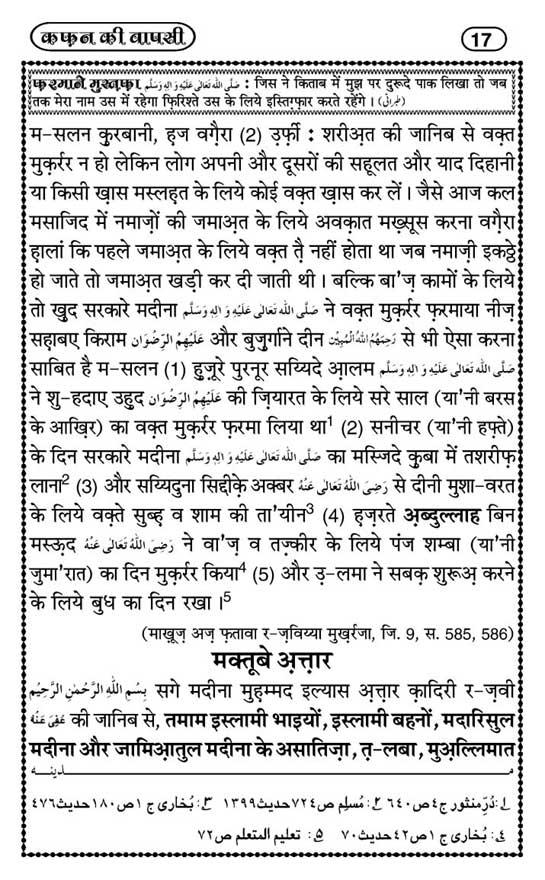 कफ़न की वापसी
17
फ़रमाने मुस्त़फ़ा صَلَّی اللہُ تَعَالٰی عَلَیْہِ وَاٰلِہٖ وَسَلَّم : जिस ने किताब में मुझ पर दुरूदे पाक लिखा तो जब
तक मेरा नाम उस में रहेगा फ़िरिश्ते उस के लिये इस्तिग़्फ़ार करते रहेंगे । (طبرانی)
म-सलन कुरबानी, ह़ज वग़ैरा (2) उ़र्फ़ी : शरीअ़त की जानिब से वक़्त
मुक़र्रर न हो लेकिन लोग अपनी और दूसरों की सहूलत और याद दिहानी
या किसी ख़ास मस्लह़त के लिये कोई वक़्त ख़ास कर लें । जैसे आज कल
मसाजिद में नमाज़ों की जमाअ़त के लिये अवक़ात मख़्सूस करना वग़ैरा
ह़ालां कि पहले जमाअ़त के लिये वक़्त त़ै नहीं होता था जब नमाज़ी इकठ्ठे
हो जाते तो जमाअ़त खड़ी कर दी जाती थी । बल्कि बा'ज़ कामों के लिये
तो खुद सरकारे मदीना صَلَّی اللہُ تَعَالٰی عَلَیْہِ وَاٰلِہٖ وَسَلَّم ने वक़्त मुक़र्रर फ़रमाया नीज़
सह़ाबए किराम عَلَیْہِمُ الرِّضْوَان और बुज़ुर्गाने दीन رَحِمَہُمُ اللہُ الْمُبِیْن से भी ऐसा करना
साबित है म-सलन (1) हुज़ूरे पुरनूर सय्यिदे आ़लम صَلَّی اللہُ تَعَالٰی عَلَیْہِ وَاٰلِہٖ وَسَلَّم
ने शु-हदाए उहुद عَلَیْہِمُ الرِّضْوَان की ज़ियारत के लिये सरे साल (या'नी बरस
के आख़िर) का वक़्त मुक़र्रर फ़रमा लिया था¹ (2) सनीचर (या'नी हफ़्ते)
के दिन सरकारे मदीना صَلَّی اللہُ تَعَالٰی عَلَیْہِ وَاٰلِہٖ وَسَلَّم का मस्जिदे कुबा में तशरीफ़
लाना² (3) और सय्यिदुना सिद्दीक़े अक्बर رَضِیَ اللہُ تَعَالٰی عَنْہُ से दीनी मुशा-वरत
के लिये वक़्ते सुब्ह़ व शाम की ता'यीन³ (4) ह़ज़रते अ़ब्दुल्लाह बिन
मस्ऊ़द رَضِیَ اللہُ تَعَالٰی عَنْہُ ने वा'ज़ व तज़्कीर के लिये पंज शम्बा (या'नी
जुमा'रात) का दिन मुक़र्रर किया⁴ (5) और उ़-लमा ने सबक़ शुरूअ़ करने
के लिये बुध का दिन रखा ।⁵
(माख़ूज़ अज़ फ़तावा र-ज़विय्या मुख़र्रजा, जि. 9, स. 585, 586)
मक्तूबे अ़त्त़ार
بِسْمِ اللہِ الرَّحْمٰنِ الرَّحِیْم सगे मदीना मुह़म्मद इल्यास अ़त्त़ार क़ादिरी र-ज़वी
عُفِیَ عَنْہُ की जानिब से, तमाम इस्लामी भाइयों, इस्लामी बहनों, मदारिसुल
मदीना और जामिआ़तुल मदीना के असातिज़ा, त़-लबा, मुअ़ल्लिमात
مـــدینـــہ
۱ : دُرِّمنثور ج۴ص۶۴۰ ۲ : مُسلِم ص۷۲۴حدیث۱۳۹۹ ۳ : بُخاری ج۱ص۱۸۰حدیث۴۷۶
۴ : بُخاری ج۱ص۴۲حدیث۷۰ ۵ : تعلیم المتعلم ص۷۲